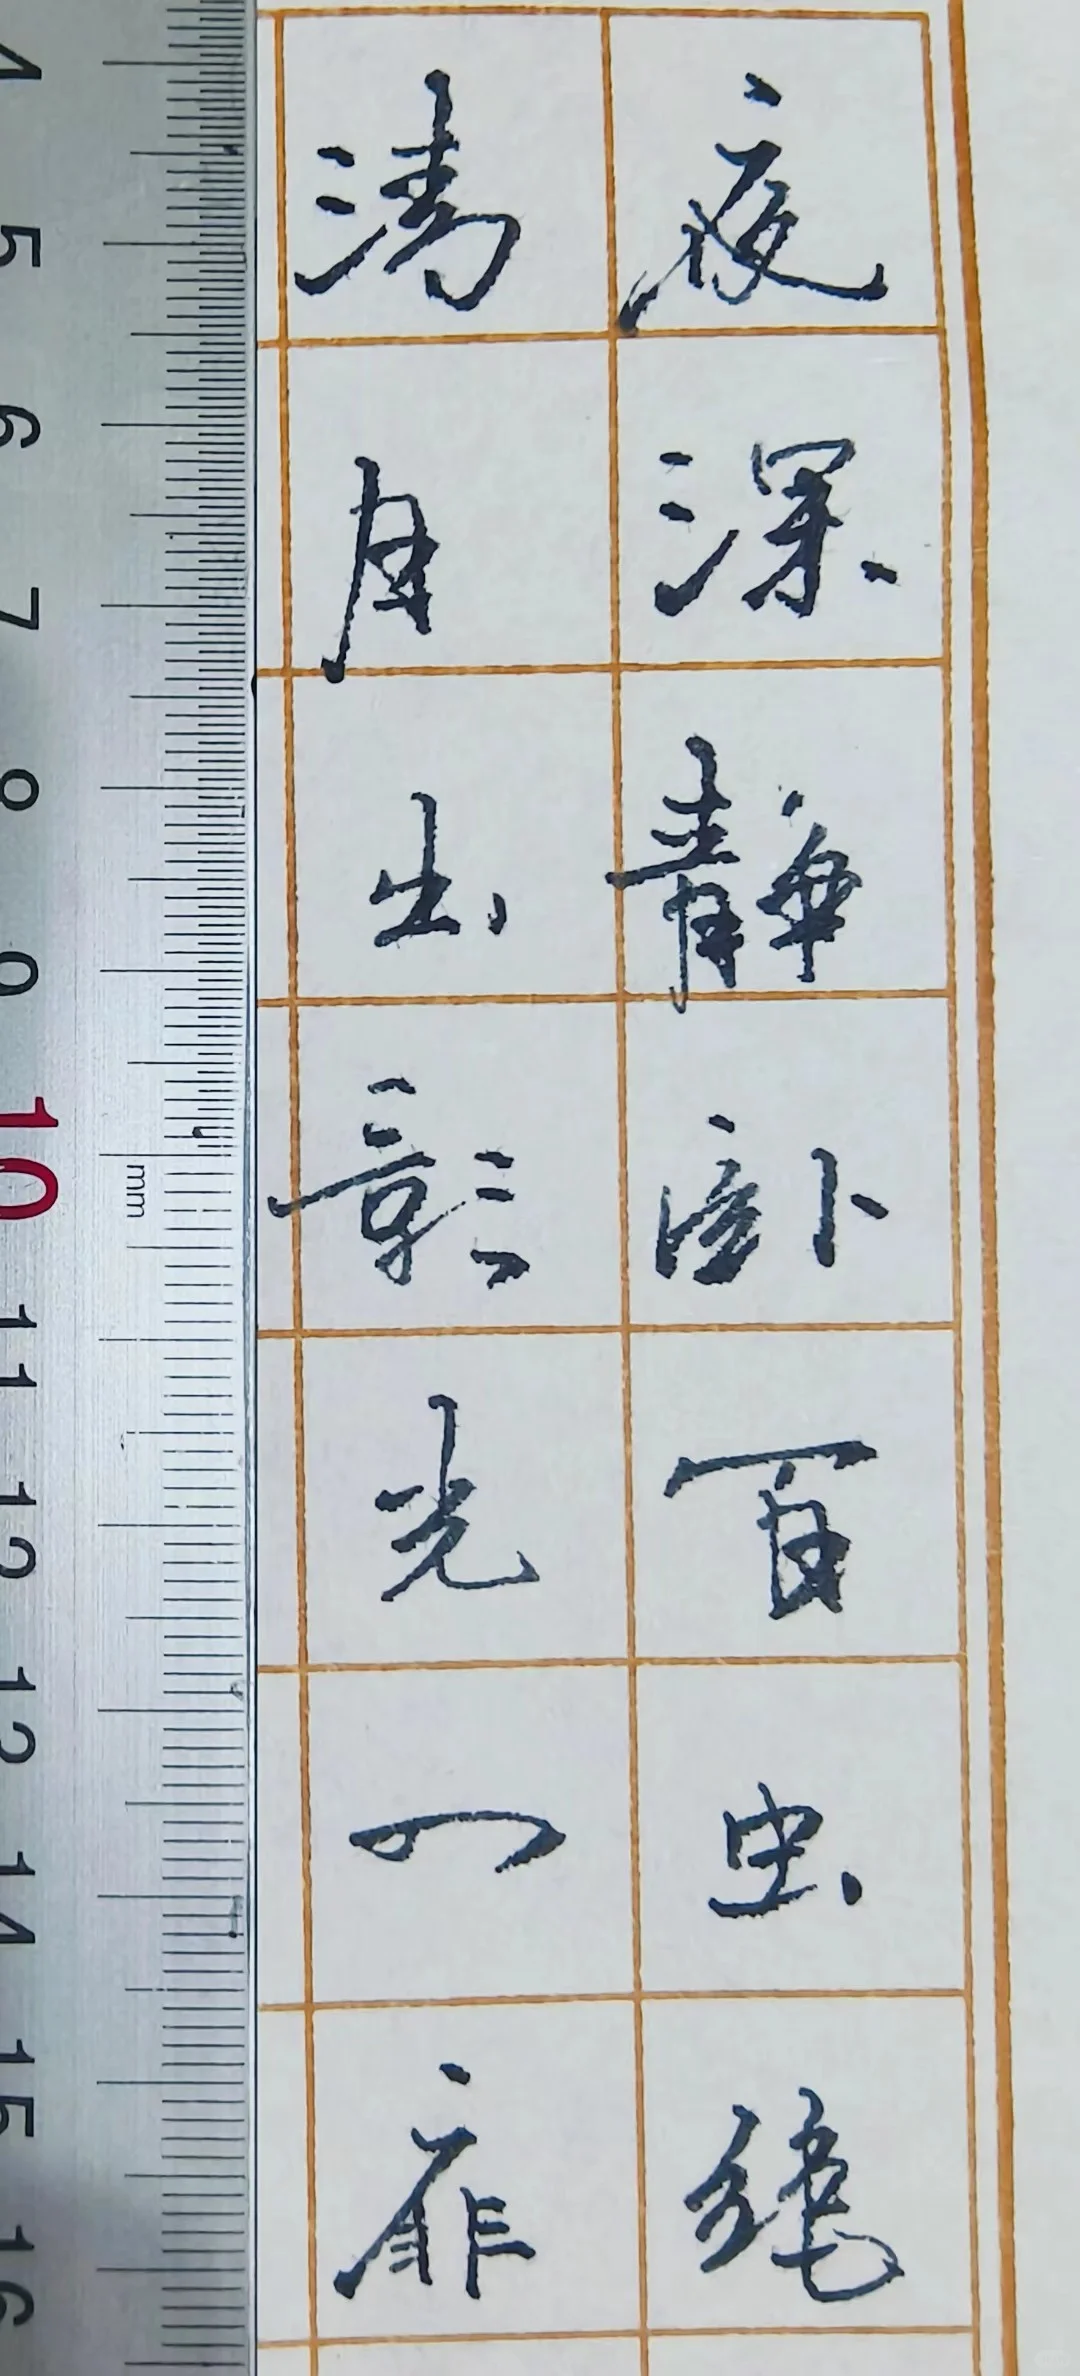 夜深静卧百虫绝
清月出影光入扉
4 5 6 7 8 9 10 11 12 13 14 15 16
mm